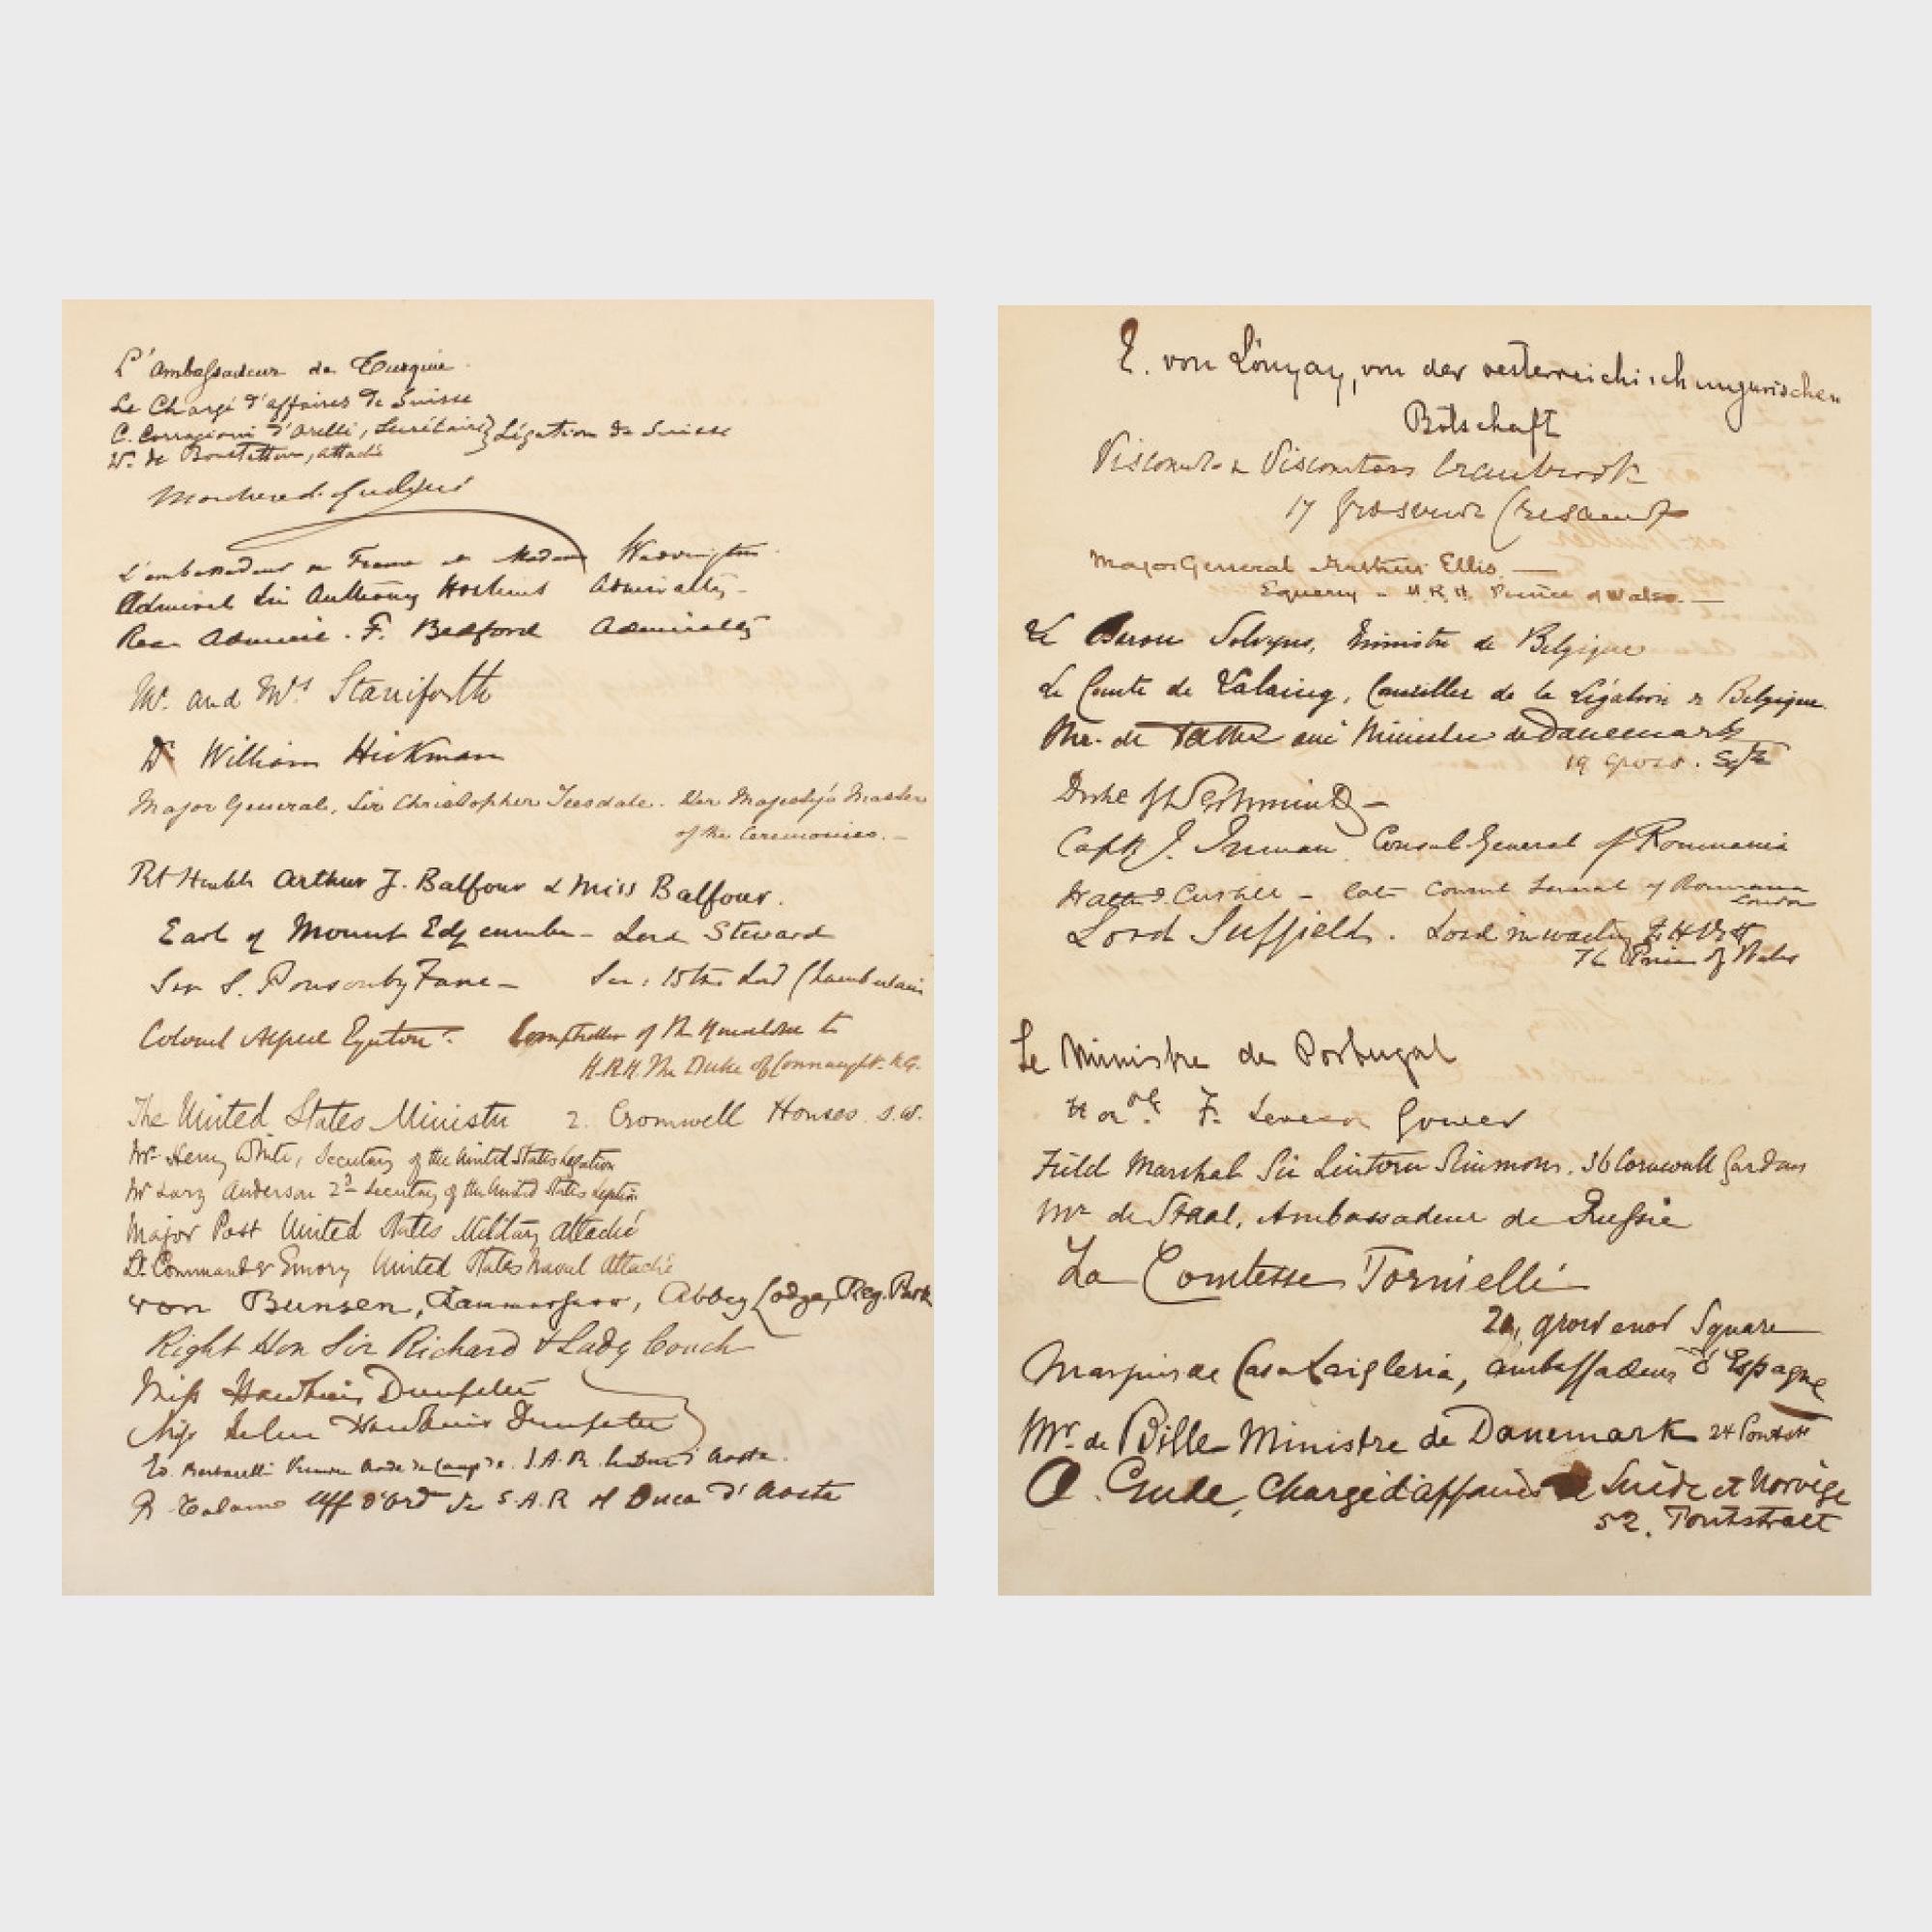 L'Ambassadeur de Turquie
Le Chargé d'affaires de Suisse
C. Corragioni d'Orelli, Secrétaire } Légation de Suisse
W. de Bonstetten, attaché
L'ambassadeur de France et Madame Waddington
Admiral Sir Anthony Hoskins Admiralty
Rear Admiral F. Bedford Admiralty
Mr. and Mrs Staniforth
Dr William Hickman
Major General, Sir Christopher Teesdale. Her Majesty's Master
of the Ceremonies. -
Rt Honble Arthur J. Balfour & Miss Balfour.
Earl of Mount Edgcumbe - Lord Steward
Sir S. Ponsonby Fane - Lord Chamberlain
Colonel Alfred Egerton. Comptroller of the Household to
H.R.H. The Duke of Connaught. K.G.
The United States Minister 2. Cromwell Houses. S.W.
Mr. Henry White, Secretary of the United States Legation
Mr Larz Anderson 2d Secretary of the United States Legation
Major Post United States Military Attaché
Lt. Commander Emory United States Naval Attaché
von Bunsen, Abbey Lodge, Reg. Park
Right Hon Sir Richard & Lady Couch
Miss Hawkins Dempster
Miss Helen Hawkins Dempster
de Camp de S.A.R. le Duc d'Aosta.
Uff d'Ord de S.A.R il Duca d'Aosta
E. von Lónyay, von der oesterreichisch ungarischen
Botschaft
Viscount & Viscountess Cranbrook
17 Grosvenor Crescent
Major General Arthur Ellis. —
Equerry - H.R.H. Prince of Wales. —
Le Baron Solvyns, Ministre de Belgique
Le Comte de Lalaing, Conseiller de la Légation de Belgique.
Ministre de Danemark
19 Grosv. Sqre
Duke of Westminster -
Capt J. Inman Consul General of Roumania
Late Consul General of Roumania
London
Lord Suffield. Lord in waiting to HRH
The Prince of Wales
Le Ministre de Portugal
Honble F. Leveson Gower
Field Marshal Sir Lintorn Simmons. 36 Cornwall Gardens
Mr de Staal, Ambassadeur de Russie
La Comtesse Tornielli
20, Grosvenor Square
Marquis de Casa Laiglesia, ambassadeur d'Espagne
Mr. de Bille Ministre de Danemark 24 Pont St
O. Gude, Chargé d'affaires de Suède et Norvège
52. Pontstreet